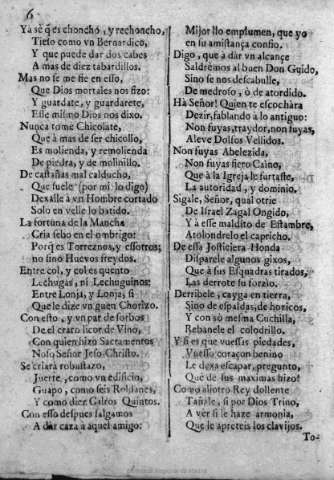 6
Ya sè q̃ es chonchó, y rechoncho,
Tieso como vn Bernardico,
Y que puede dar dos cabes
A mas de diez tabardillos.
Mas no se me fie en esso,
Que Dios mortales nos hizo:
Y guardate, y guardarete,
Esse mismo Dios nos dixo.
Nunca tome Chicolate,
Que à mas de ser chicollo,
Es molienda, y remolienda
De piedra, y de molinillo.
De castañas mal calducho,
Que suele (por mi lo digo)
Dexalle à vn Hombre cortado
Solo en velle lo batido.
La fortuna de la Mancha
Cria sebo en el ombrigo:
Porq̃ es Torreznos, y essotros;
no sino Huevos freydos.
Entre col, y col es quento
Lechugas, ni Lechuguinos:
Entre Lonja, y Lonja, si
Que le dize vn guen Chorizo.
Con esto, y vn par de sorbos
De el craro licor de Vino,
Con quien hizo Sacramentos
Noso Señor Jeso-Christo.
Se criarà robustazo,
Juerte, como vn edificio,
Guapo, como seis Roldanes,
Y como diez Calros Quintos.
Con esso despues salgamos
A dar caza à aquel amigo:
Mijor llo emplumen, que yo
en su amistança confio.
Digo, que à dar vn alcançe
Saldrèmos al buen Don Guido,
Sino se nos descabulle,
De medroso, ò de atordido.
Hà Señor! Quien te escochàra
Dezir, fablando à lo antiguo:
Non fuyas, traydor, non fuyas,
Aleve Dolfos Vellidos.
Non fuyas Abelezida,
Non fuyas fiero Caino,
Que à la Igreja le furtaste,
La autoridad, y dominio.
Sigale, Señor, qual otrie
De Israel Zagal Ongido,
Y à esse maldito de Estambre,
Atolondrelo el capricho.
De essa Josticiera Honda
Disparele algunos gixos,
Que à sus Esquadras tirados,
Las derrote su sorvio.
Derribele, cayga en tierra,
Sino de espaldas, de horicos,
Y con sò mesma Cuchilla,
Rebanele el colodrillo.
Y si es que vuessas piedades,
Vuesso coraçon benino
Le dexa escapar, pregunto,
Què de sus maximas hizo?
Como aliotro Rey dollente
Tañale, si por Dios Trino,
A ver si le haze armonia,
Que le apreteis los clavijos.
To-